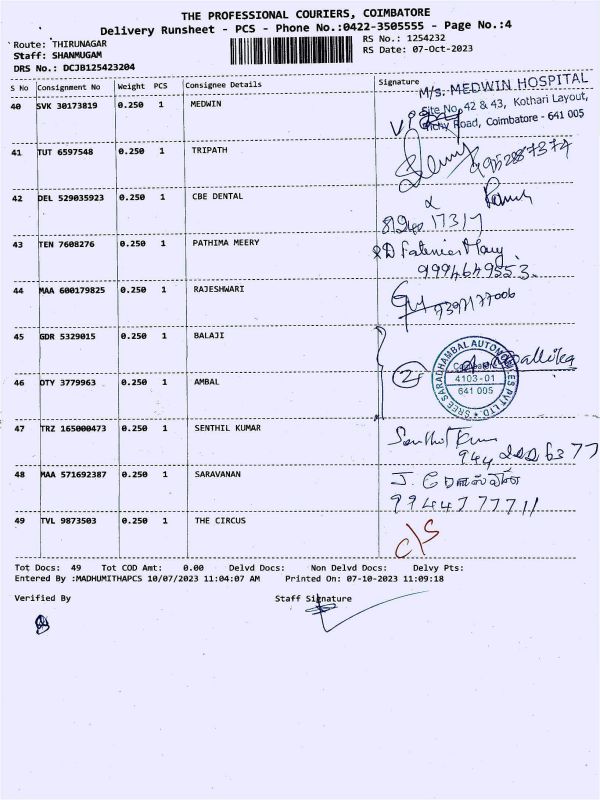 THE PROFESSIONAL COURIERS, COIMBATORE
Delivery Runsheet - PCS - Phone No.:0422-3505555 - Page No.:4
Route: THIRUNAGAR
RS No.: 1254232
Staff: SHANMUGAM
RS Date: 07-Oct-2023
DRS No.: DCJB125423204
S No Consignment No Weight PCS Consignee Details Signature
40 SVK 30173819 0.250 1 MEDWIN
M/s. MEDWIN HOSPITAL
Site No. 42 & 43, Kothari Layout,
Road, Coimbatore - 641 005
41 TUT 6597548 0.250 1 TRIPATH
42 DEL 529035923 0.250 1 CBE DENTAL
43 TEN 7608276 0.250 1 PATHIMA MEERY
9994649553
44 MAA 600179825 0.250 1 RAJESHWARI
9397177006
45 GDR 5329015 0.250 1 BALAJI
46 OTY 3779963 0.250 1 AMBAL
SREE SARADHAMBAL AUTOMOBILES PVT LTD
4103-01
641 005
47 TRZ 165000473 0.250 1 SENTHIL KUMAR
48 MAA 571692387 0.250 1 SARAVANAN
9944777711
49 TVL 9873503 0.250 1 THE CIRCUS
C/S
Tot Docs: 49 Tot COD Amt: 0.00 Delvd Docs: Non Delvd Docs: Delvy Pts:
Entered By :MADHUMITHAPCS 10/07/2023 11:04:07 AM Printed On: 07-10-2023 11:09:18
Verified By Staff Signature